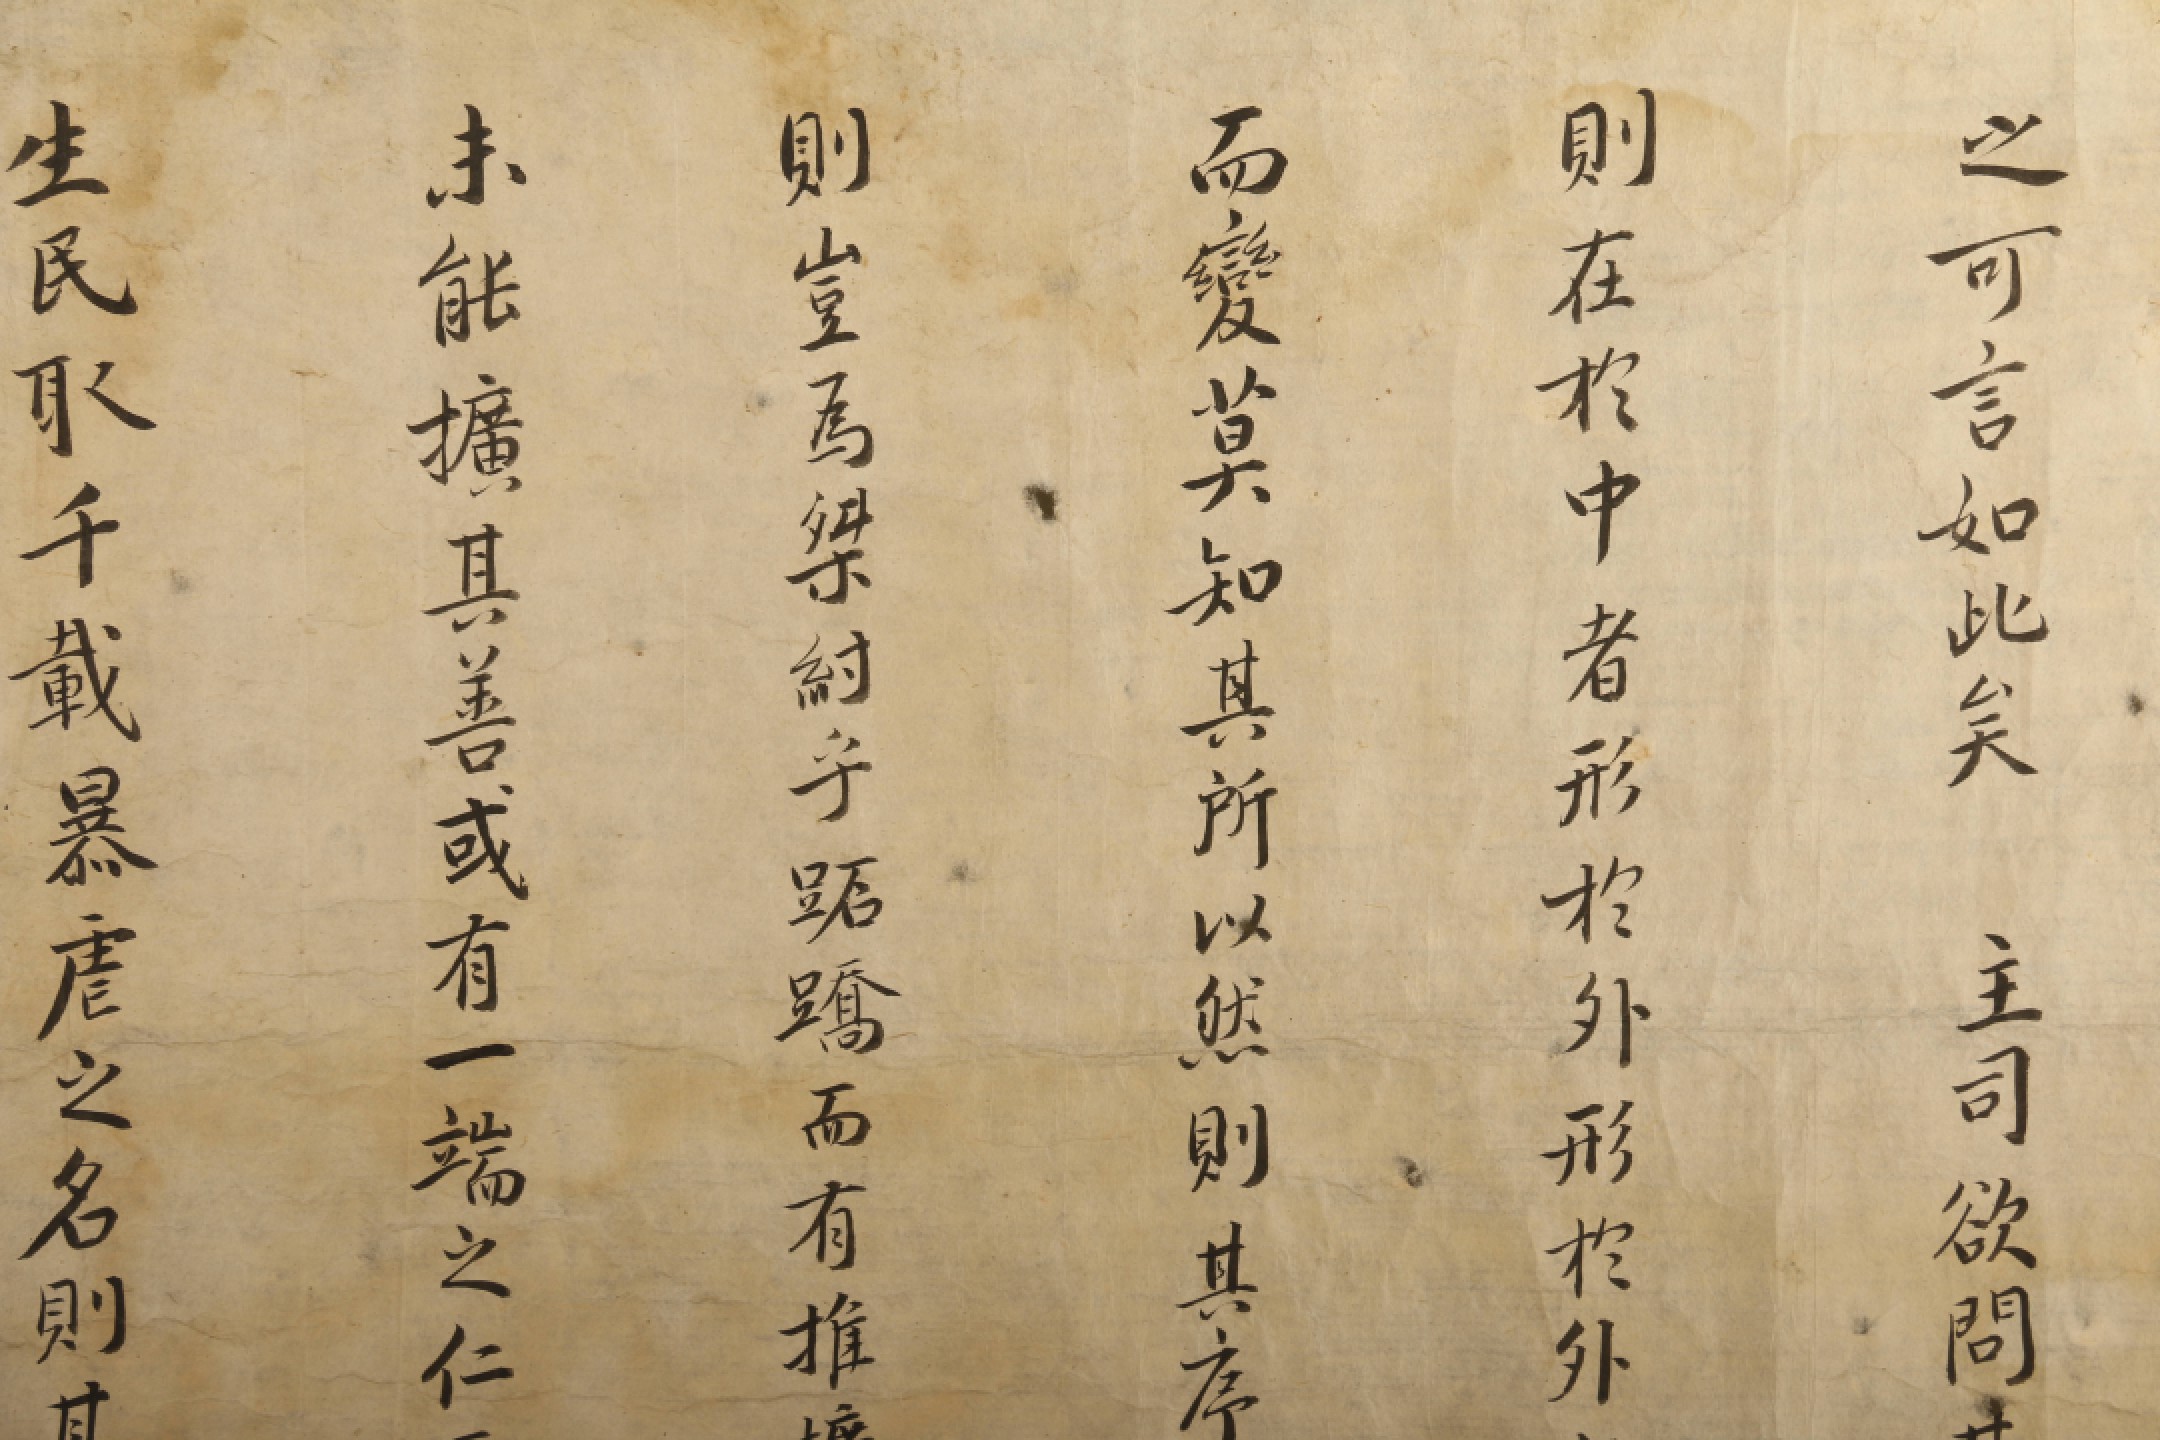 之可言如此矣 主司欲問其
則在於中者形於外形於外
而變莫知其所以然則其序
則豈爲桀紂乎跖蹻而有推擴
未能擴其善或有一端之仁
生民取千載暴虐之名則其